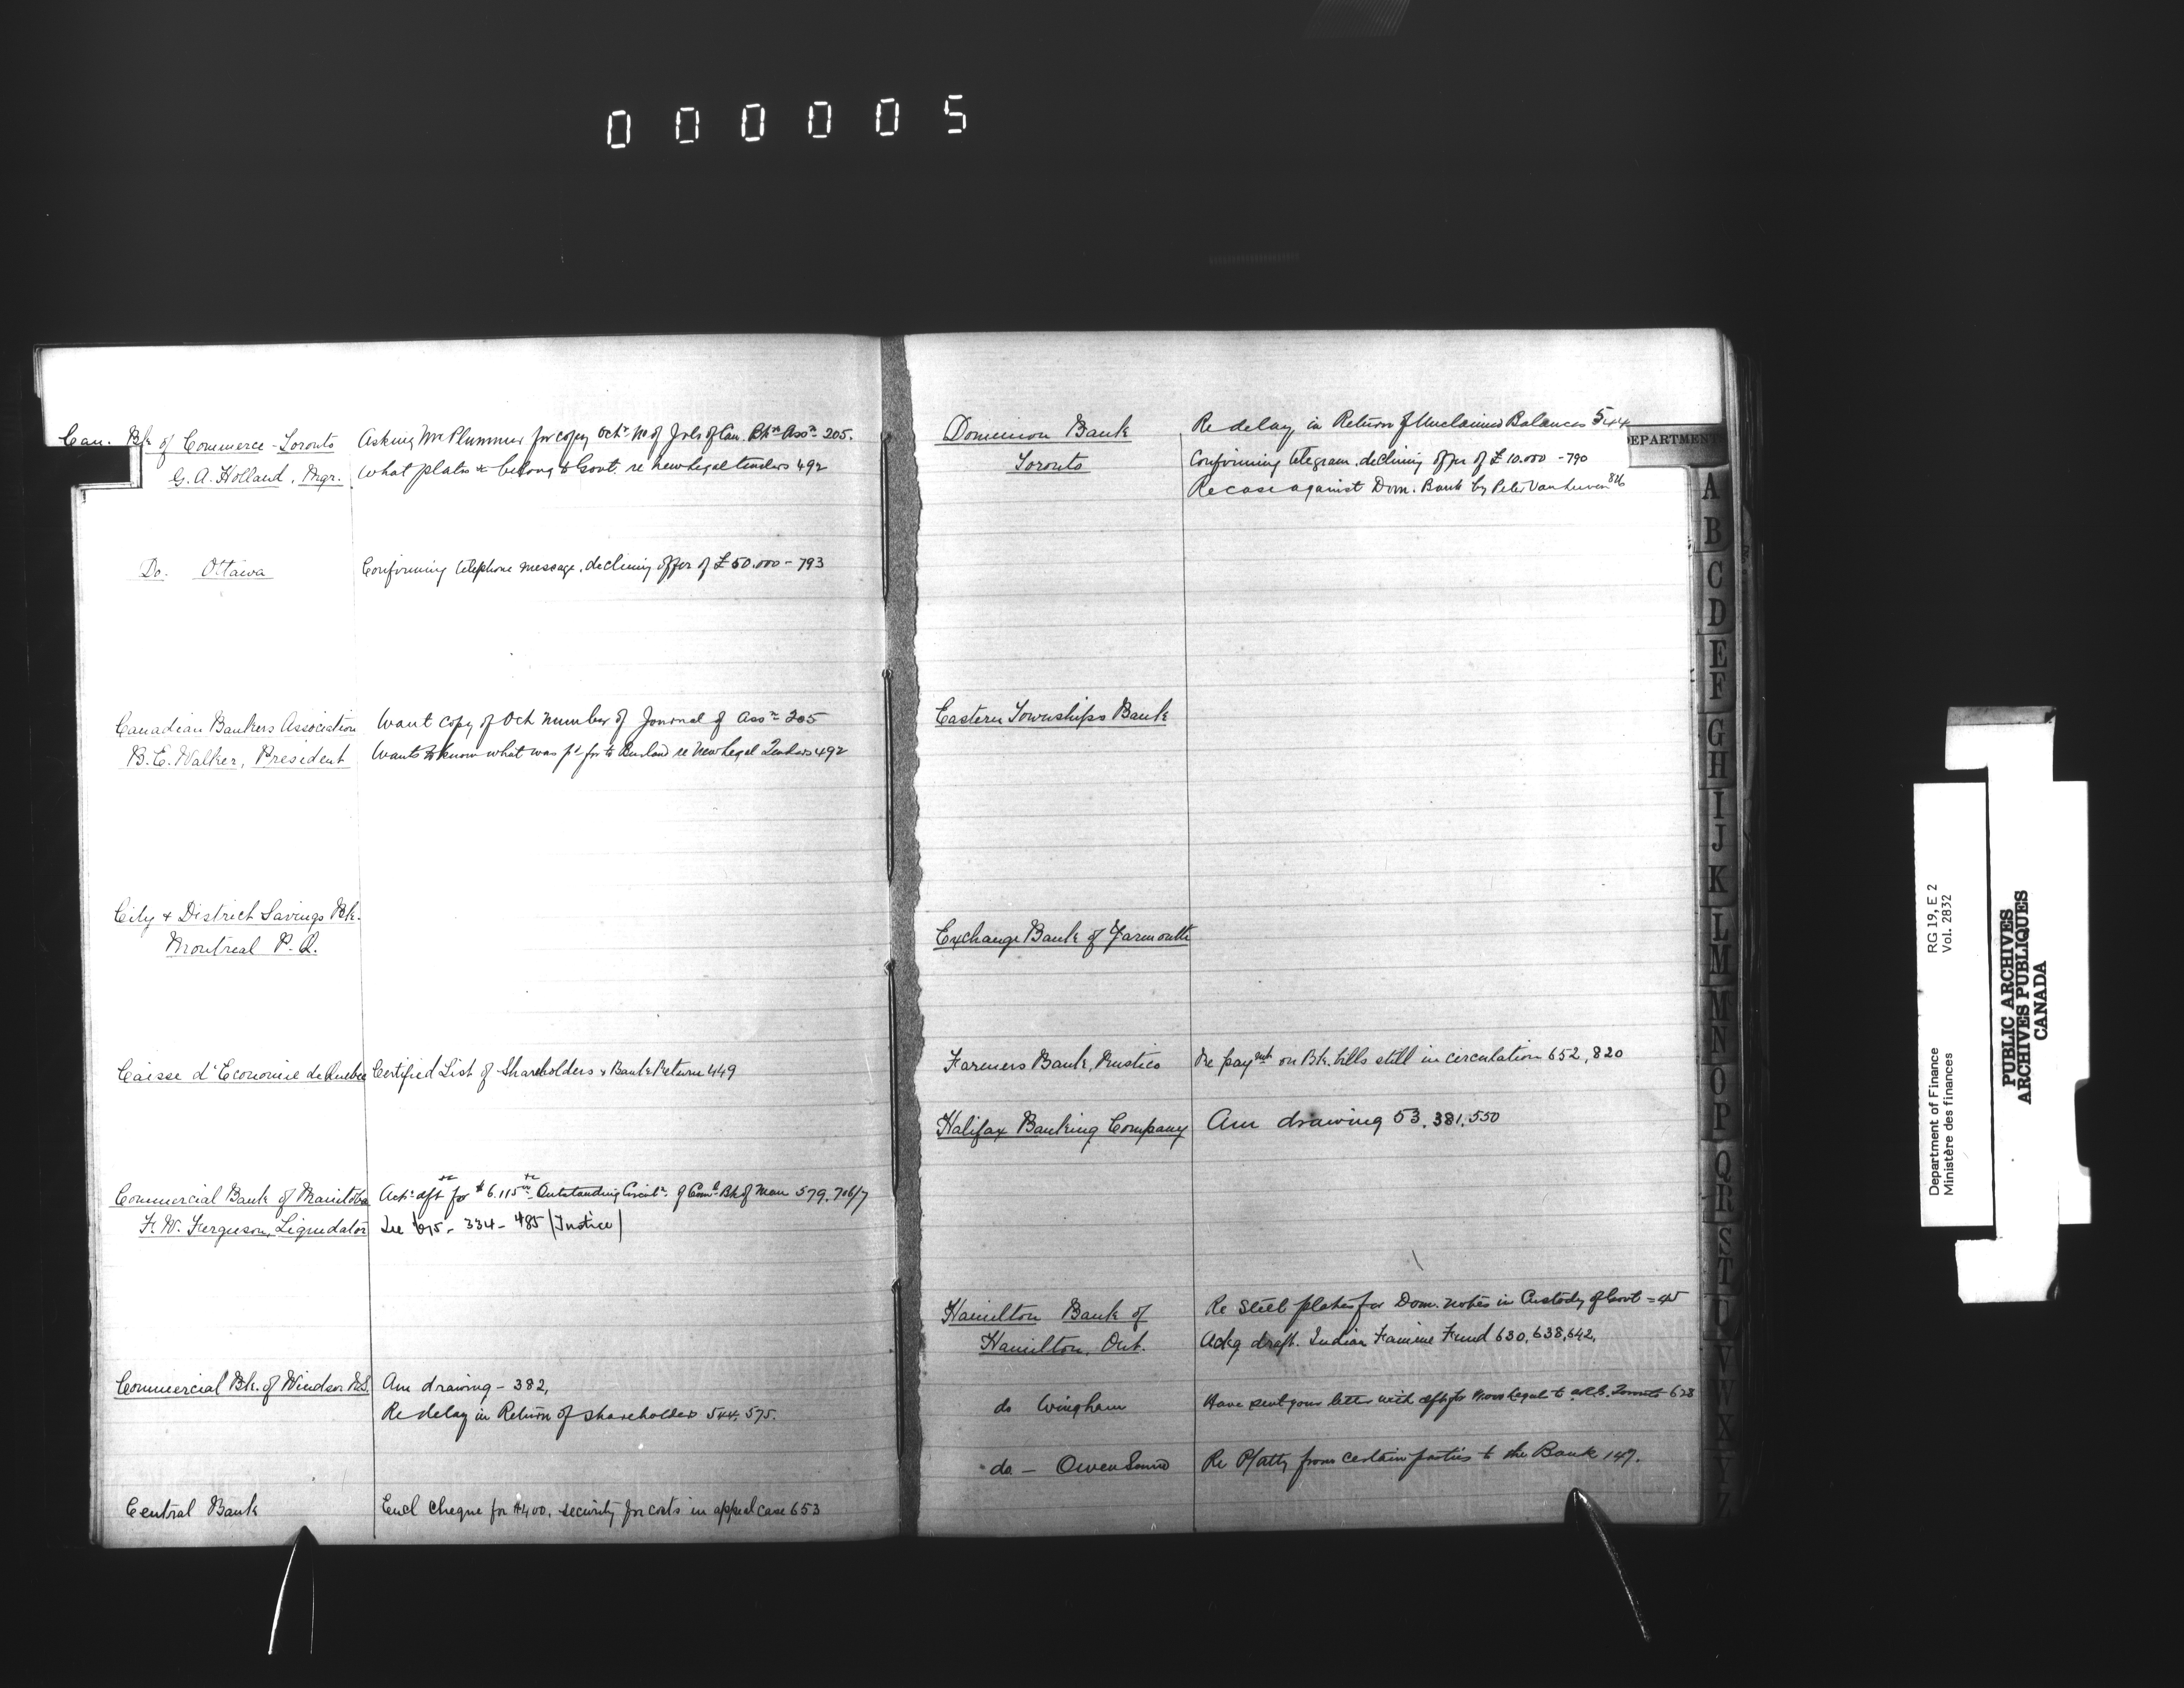 000005
Can. Bk. of Commerce - Toronto
G. A. Holland, Mgr.
Asking Mr Plummer for copy Octr. No of Jrls of Can. Bkrs Assn 205.
What plates &c belong to Govt. re new legal tenders 492
Do. Ottawa
Confirming telephone message, declining offer of £50.000 - 793
Canadian Bankers Association
B. E. Walker, President
Want copy of Oct number of Journal of Assn 205
Wants to know what was pd for to Burland re New Legal Tenders 492
City & District Savings Bk.
Montreal P. Q.
Caisse d'Economie de Quebec
Certified List of Shareholders & Bank Return 449
Commercial Bank of Manitoba
F. W. Ferguson, Liquidator
Ackg dft for $6.115 Outstanding Circuln. of Coml Bk of Man 579, 706/7
See 334 - 485 (Justice)
Commercial Bk. of Windsor N.S.
Am drawing - 382,
Re delay in Return of shareholders 544, 575.
Central Bank
Encl cheque for $400. security for costs in appeal case 653
Dominion Bank
Toronto
Re delay in Return of Unclaimed Balances 544
Confirming telegram, declining offer of £10.000 - 790
Re case against Dom. Bank by Peter Van 826
Eastern Townships Bank
Exchange Bank of Yarmouth
Farmers Bank, Rustico
Re paymt on Bk. bills still in circulation 652, 820
Halifax Banking Company
Am drawing 53, 381, 550
Hamilton Bank of
Hamilton, Ont.
Re Steel plates for Dom. notes in Custody of Govt = 45
Ackg draft. Indian Famine Fund 630, 638, 642,
do Wingham
Have sent your letter with dft for legal to Toronto 628
do - Owen Sound
Re P/atty from certain parties to the Bank 147.
DEPARTMENT
A
B
C
D
E
F
G
H
I
J
K
L
M
M
N
O
P
Q
R
S
T
U
V
W
X
Y
Z
Department of Finance RG 19, E 2
Ministère des finances Vol. 2832
PUBLIC ARCHIVES
ARCHIVES PUBLIQUES
CANADA